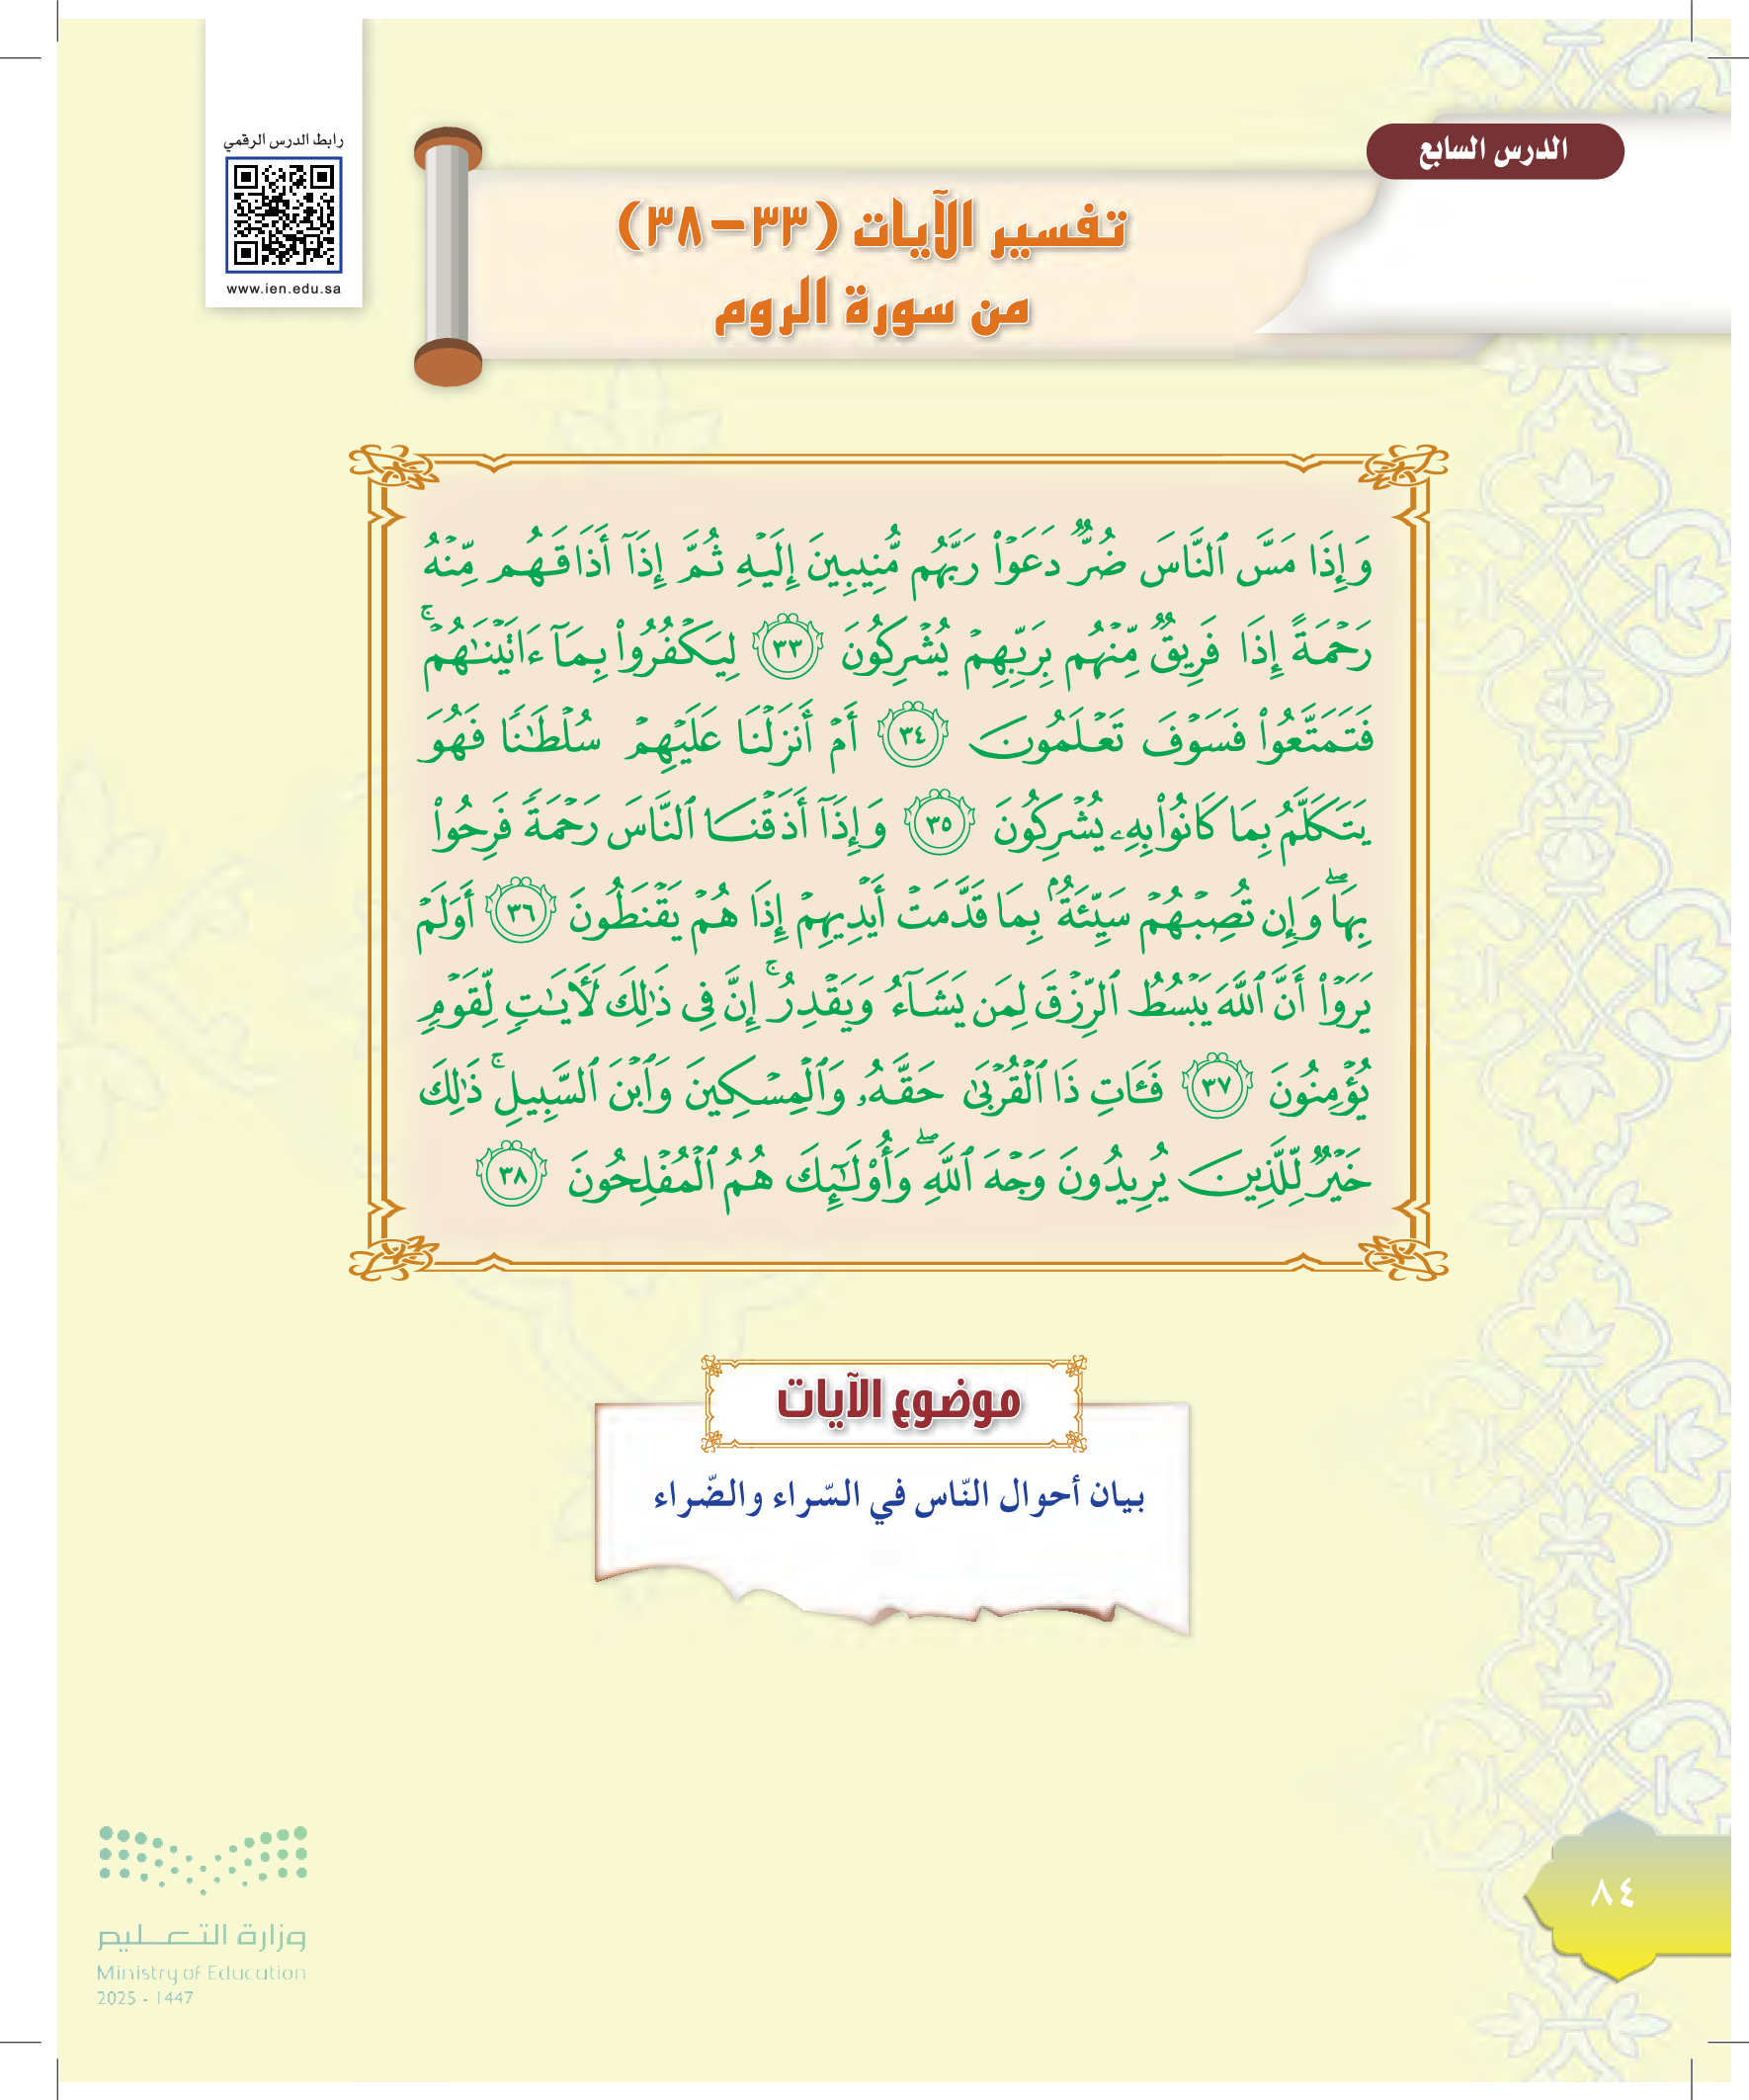 الدرس السابع
رابط الدرس الرقمي
www.ien.edu.sa
تفسير الآيات (٣٣-٣٨)
من سورة الروم
وَإِذَا مَسَّ ٱلنَّاسَ ضُرٌّ دَعَوْا۟ رَبَّهُم مُّنِيبِينَ إِلَيْهِ ثُمَّ إِذَآ أَذَاقَهُم مِّنْهُ
رَحْمَةً إِذَا فَرِيقٌ مِّنْهُم بِرَبِّهِمْ يُشْرِكُونَ ٣٣ لِيَكْفُرُوا۟ بِمَآ ءَاتَيْنَٰهُمْ ۚ
فَتَمَتَّعُوا۟ فَسَوْفَ تَعْلَمُونَ ٣٤ أَمْ أَنزَلْنَا عَلَيْهِمْ سُلْطَٰنًا فَهُوَ
يَتَكَلَّمُ بِمَا كَانُوا۟ بِهِۦ يُشْرِكُونَ ٣٥ وَإِذَآ أَذَقْنَا ٱلنَّاسَ رَحْمَةً فَرِحُوا۟
بِهَا ۖ وَإِن تُصِبْهُمْ سَيِّئَةٌۢ بِمَا قَدَّمَتْ أَيْدِيهِمْ إِذَا هُمْ يَقْنَطُونَ ٣٦ أَوَلَمْ
يَرَوْا۟ أَنَّ ٱللَّهَ يَبْسُطُ ٱلرِّزْقَ لِمَن يَشَآءُ وَيَقْدِرُ ۚ إِنَّ فِى ذَٰلِكَ لَءَايَٰتٍ لِّقَوْمٍ
يُؤْمِنُونَ ٣٧ فَـَٔاتِ ذَا ٱلْقُرْبَىٰ حَقَّهُۥ وَٱلْمِسْكِينَ وَٱبْنَ ٱلسَّبِيلِ ۚ ذَٰلِكَ
خَيْرٌ لِّلَّذِينَ يُرِيدُونَ وَجْهَ ٱللَّهِ ۖ وَأُو۟لَٰٓئِكَ هُمُ ٱلْمُفْلِحُونَ ٣٨
موضوع الآيات
بيان أحوال النّاس في السّراء والضّراء
٨٤
وزارة التعليم
Ministry of Education
2025 - 1447